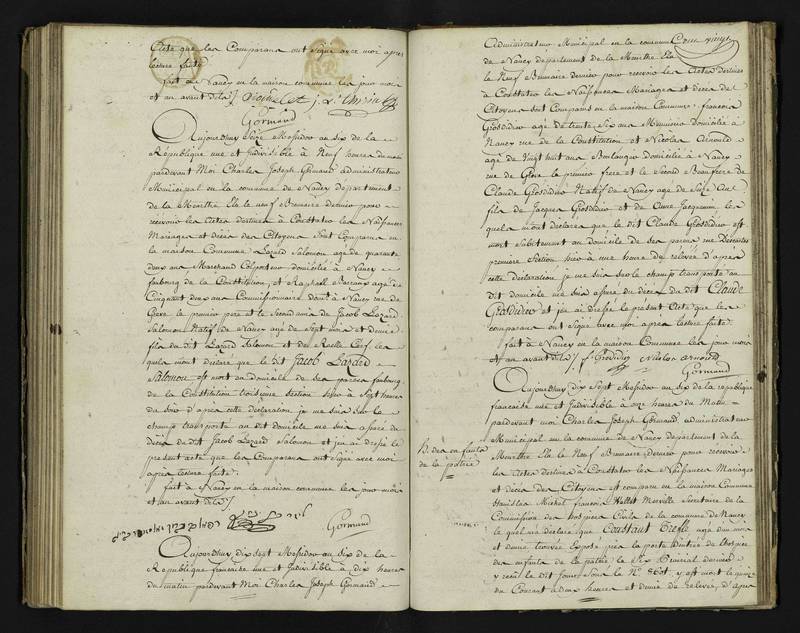 acte que les Comparans ont signé avec moi après
lecture faite
fait à Nancy en la maison commune les jour mois
et an avant dits
Gormand
Aujourdhuy Seize Messidor an six de la
République une et Indivisible à Neuf heures du matin
pardevant Moi Charles Joseph Gormand administrateur
Municipal en la commune de Nancy département
de la Meurthe Elu le neuf Brumaire dernier pour
recevoir les Actes destinés à Constater les Naissances
Mariages et décès des Citoyens Sont Comparus en
la maison Commune Lazard Salomon agé de quarante
deux ans Marchand Colporteur domicilié à Nancy
faubourg de la Constitution et Raphael agé de
Cinquant deux ans Commissionnaire domilié à Nancy rue de
Grève le premier père et le Second ami de Jacob Lazard
Salomon Natif de Nancy agé de Sept mois et demi
fils du dit Lazard Salomon et de Roelle Cerf les
quels m'ont déclaré que le dit Jacob Lazard
Salomon est mort au domicile de ses parens faubourg
de la Constitution troisième Section hier à Sept heures
du soir d'après cette déclaration je me suis sur le
champ transporté au dit domicile me suis assuré du
décès du dit Jacob Lazard Salomon et j'ai dressé le
present acte que les Comparans ont Signé avec moi
après lecture faite
fait à Nancy en la maison commune les jour mois
et an avant dits
Gormand
Aujourdhuy dix Sept Messidor an Six de la
République française une et Indivisible à dix heures
du matin pardevant Moi Charles Joseph Gormand
Cent vingt
Administrateur Municipal en la commune
de Nancy département de la Meurthe Elu
le Neuf Brumaire dernier pour recevoir les Actes destinés
à Constater les Naissances Mariages et décès des
Citoyens sont Comparus en la maison Commune françois
Grosdidier agé de trente Six ans Menuisier domicilié à
Nancy rue de la Constitution et Nicolas Arnould
agé de Vingt huit ans Boulanger domicilié à Nancy
rue de Grève le premier frère et le Second Beaufrere de
Claude Grosdidier Natif de Nancy agé de Seize ans
fils de Jacques Grosdidier et de Anne Jacquemin les
quels m'ont déclaré que le dit Claude Grosdidier est
mort Subitement au domicile de ses parens rue Descartes
première Section hier à une heure de relevée d'après
cette déclaration je me suis sur le champ transporté au
dit domicile me suis assuré du décès du dit Claude
Grosdidier et j'ai dressé le present Acte que les
comparans ont Signé avec moi après lecture faite
fait à Nancy en la maison Commune les jour mois
et an avant dits f. Grosdidier Nicolas arnould
Gormand
Aujourdhuy dix Sept Messidor an six de la republique
française une et Indivisible à onze heures du Matin
pardevant moi Charles Joseph Gormand administrateur
Municipal en la commune de Nancy departement de la
Meurthe Elu le Neuf Brumaire dernier pour recevoir
des enfants
de la patrie
les Actes destinés à Constater les Naissances Mariages
et décès des Citoyens est comparu en la maison Commune
Stanislas Michel françois Vallet Merville Secretaire de la
Commission des hospices Civils de la commune de Nancy
le quel m'a déclaré que Constant Trefle agé d'un mois
et demi trouvé Exposé près la porte d'entrée de l'hospice
des enfants de la patrie le Six Prairial dernier
y reçu le dit jour Sous le N.º 8601 y est mort le quinze
du Courant à deux heures et demie de relevée, d'après